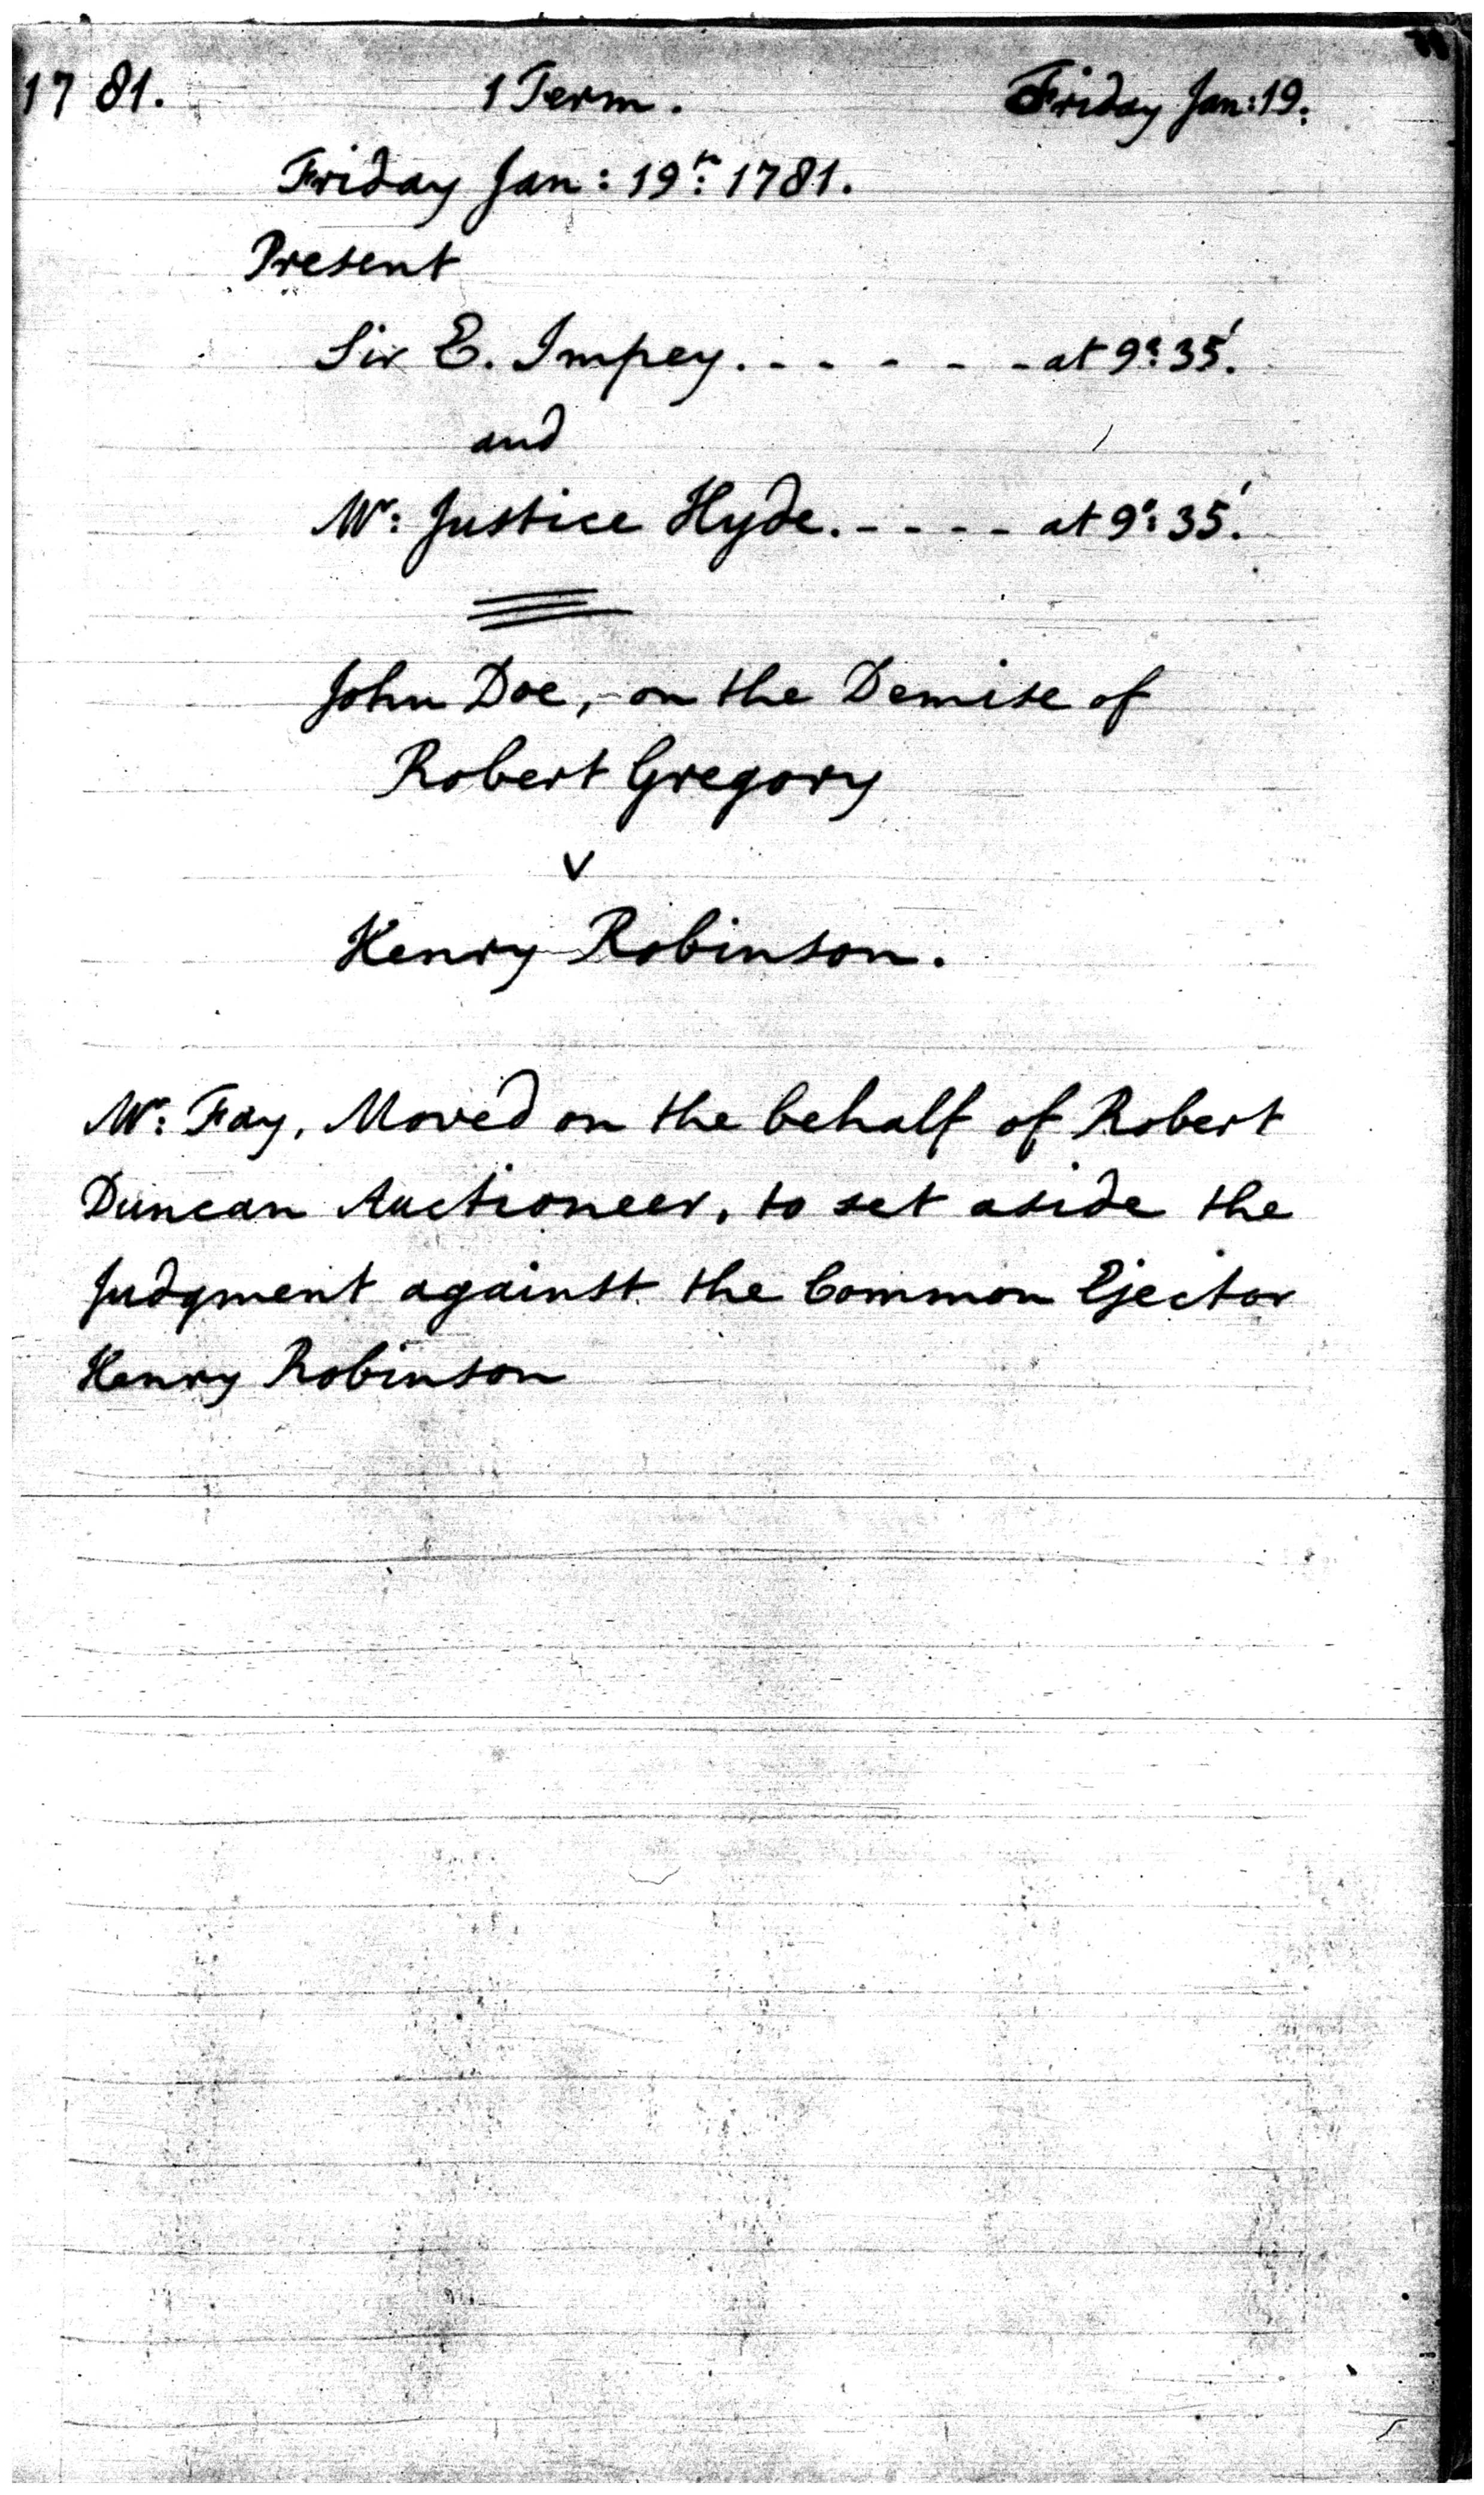 1781. 1 Term. Friday Jan: 19.
Friday Jan: 19th: 1781.
Present
Sir E. Impey. - - - - - at 9°: 35'.
and
Mr: Justice Hyde. - - - - at 9°: 35'.
John Doe, on the Demise of
Robert Gregory
v
Henry Robinson.
Mr: Fay, Moved on the behalf of Robert
Duncan Auctioneer, to set aside the
Judgment against the Common Ejector
Henry Robinson